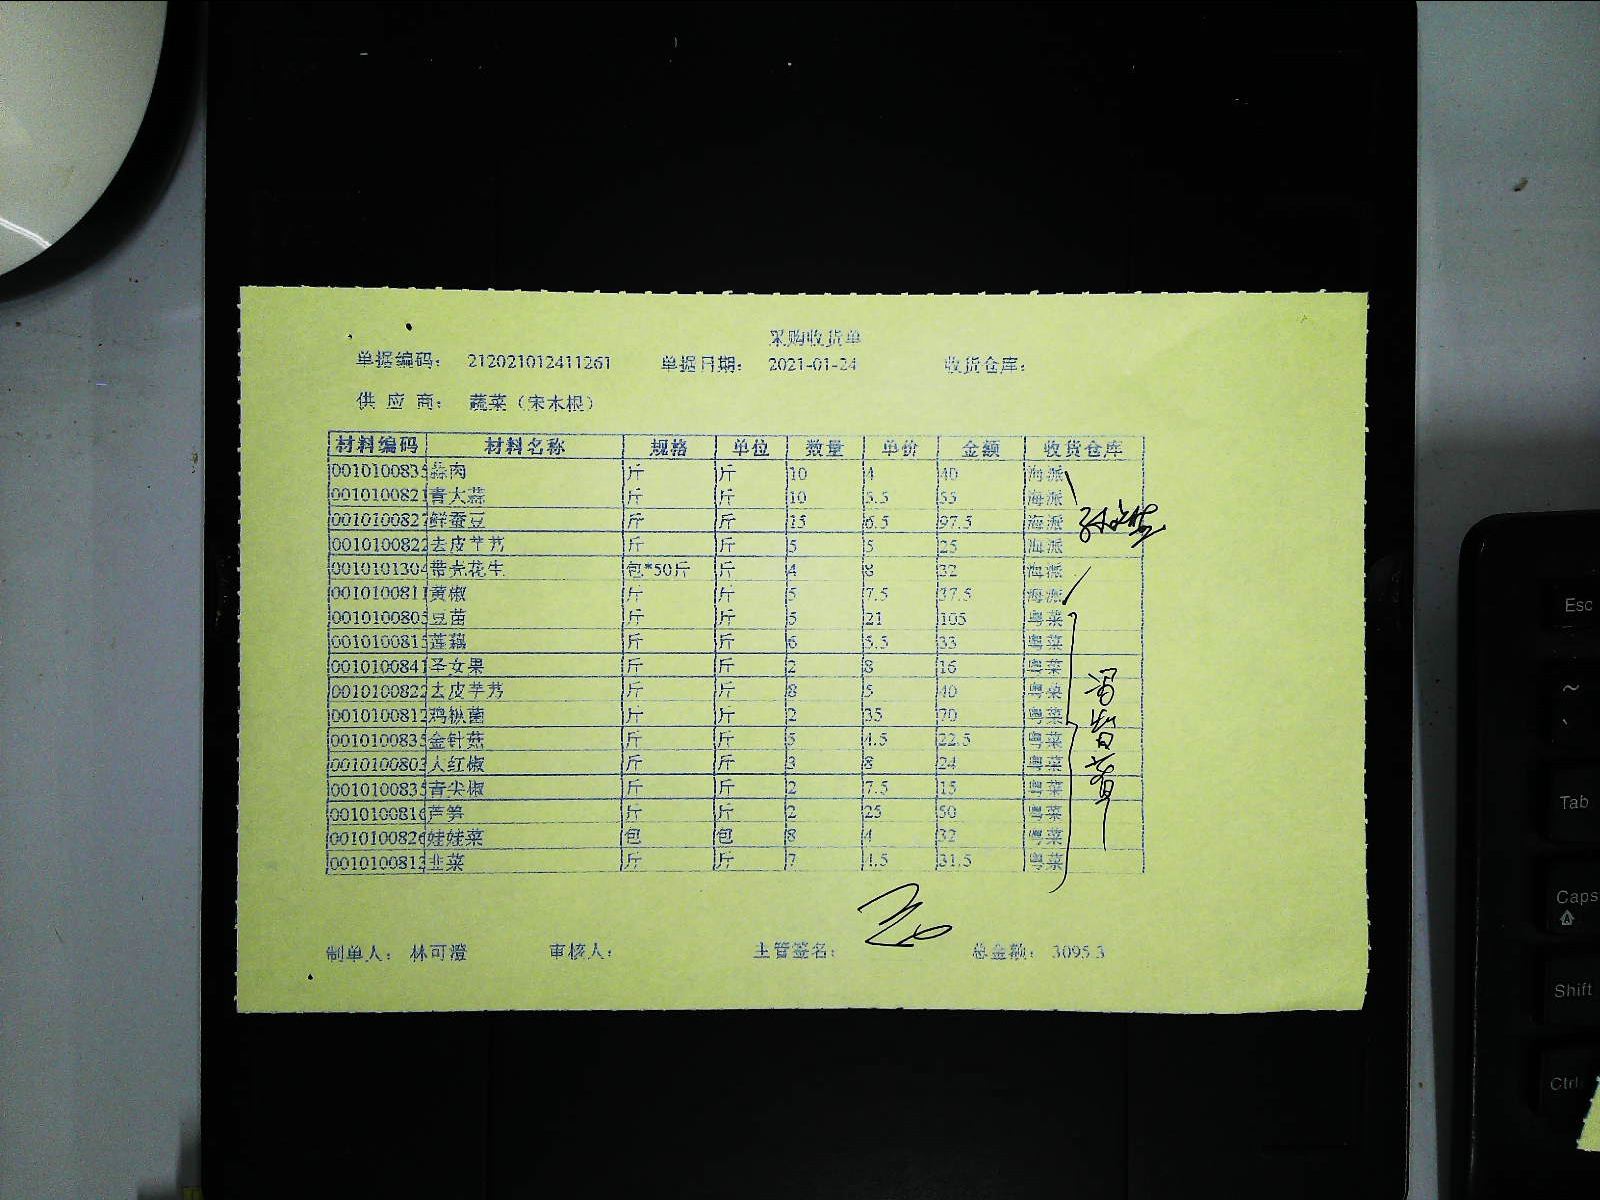 采购收货单
单据编码： 212021012411261 单据日期： 2021-01-24 收货仓库：
供 应 商： 蔬菜（宋木根）
材料编码 材料名称 规格 单位 数量 单价 金额 收货仓库
0010100835 蒜肉 斤 斤 10 4 40 海派
0010100821 青大蒜 斤 斤 10 5.5 55 海派
0010100827 鲜蚕豆 斤 斤 15 6.5 97.5 海派
0010100822 去皮芋艿 斤 斤 5 5 25 海派
0010101304 带壳花生 包*50斤 斤 4 8 32 海派
0010100811 黄椒 斤 斤 5 7.5 37.5 海派
0010100805 豆苗 斤 斤 5 21 105 粤菜
0010100815 莲藕 斤 斤 6 5.5 33 粤菜
0010100841 圣女果 斤 斤 2 8 16 粤菜
0010100822 去皮芋艿 斤 斤 8 5 40 粤菜
0010100812 鸡枞菌 斤 斤 2 35 70 粤菜
0010100835 金针菇 斤 斤 5 4.5 22.5 粤菜
0010100803 大红椒 斤 斤 3 8 24 粤菜
0010100835 青尖椒 斤 斤 2 7.5 15 粤菜
0010100816 芦笋 斤 斤 2 25 50 粤菜
0010100826 娃娃菜 包 包 8 4 32 粤菜
0010100813 韭菜 斤 斤 7 4.5 31.5 粤菜
制单人： 林可澄 审核人： 主管签名： 总金额： 3095.3
Esc
~
`
Tab
Caps
Shift
Ctrl